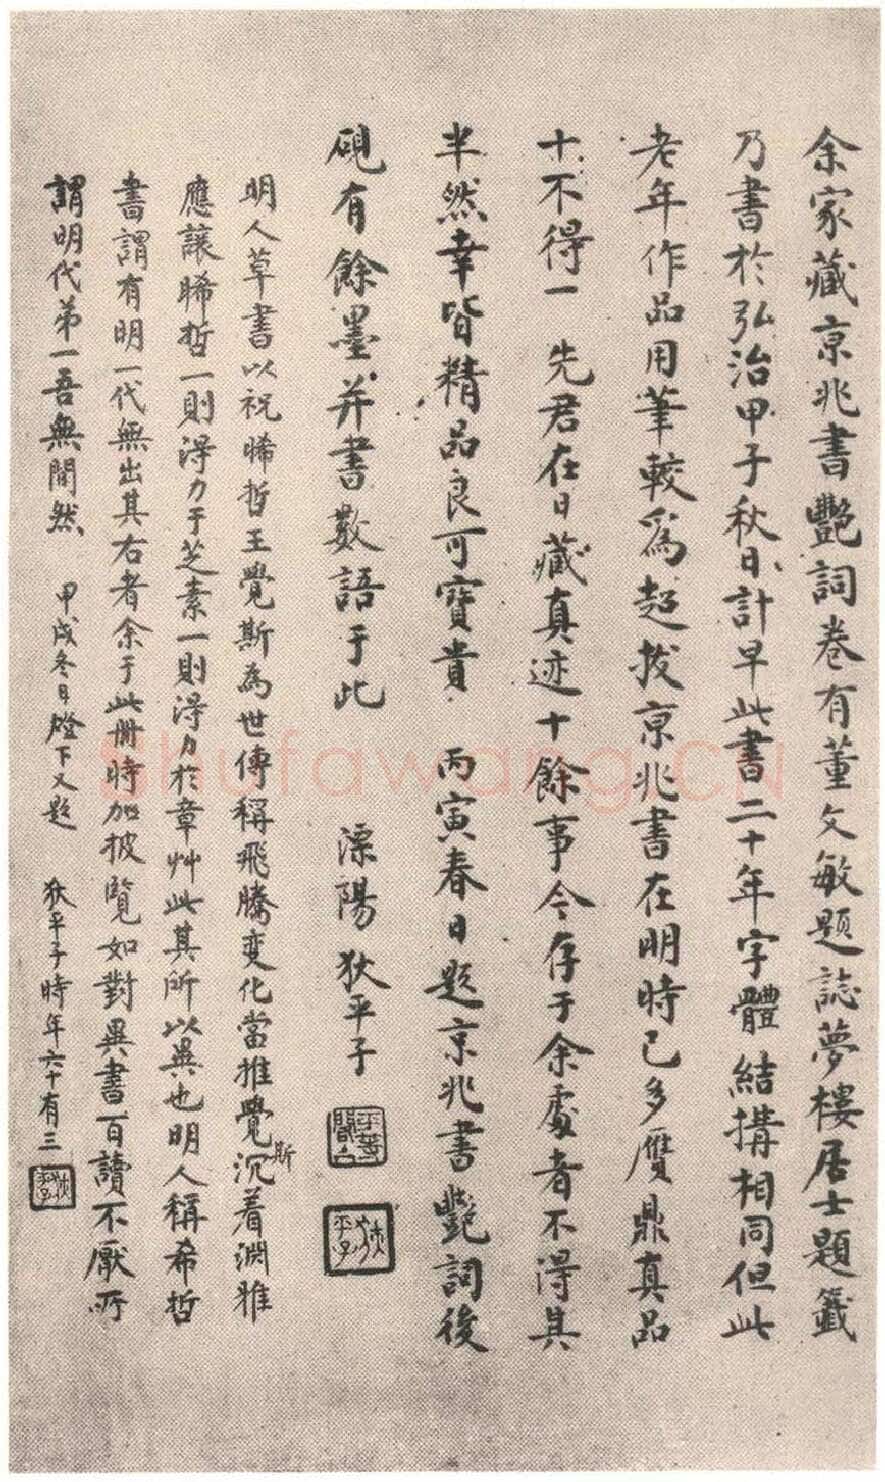 余家藏京兆書艷詞卷有董文敏題誌夢樓居士題籤
乃書於弘治甲子秋日計早此書二十年字體結搆相同但此
老年作品用筆較爲超拔京兆書在明時已多贗鼎真品
十不得一 先君在日藏真迹十餘事今存于余處者不得其
半然幸皆精品良可寶貴 丙寅春日題京兆書艷詞後
硯有餘墨并書數語于此 溧陽狄平子
明人草書以祝晞哲王覺斯為世傳稱飛騰变化當推覺斯沉着渊雅
應讓晞哲一則得力于芝素一則得力於章艸此其所以異也明人稱希哲
書謂有明一代無出其右者余于此冊時加披覽如對異書百讀不厭所
謂明代第一吾無間然 甲戌冬日燈下又題 狄平子時年六十有三
狄平子
Shufawang.CN